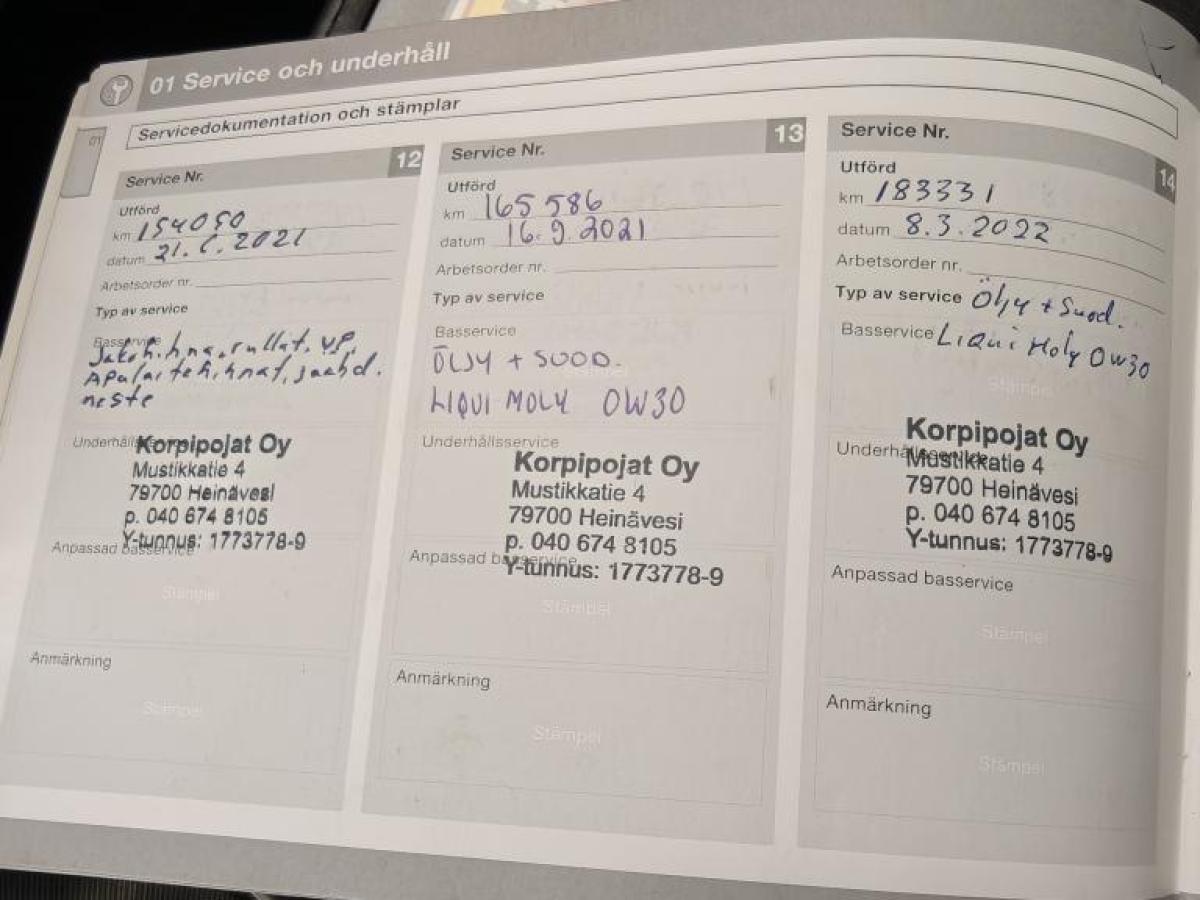 01 Service och underhåll
01
Servicedokumentation och stämplar
Service Nr. 12
Utförd
km 154050
datum 21.6.2021
Arbetsorder nr.
Typ av service
Basservice
Jakohihna, rullat, VP,
Apulaitehihnat, jäähd.
neste
Underhållsservice
Korpipojat Oy
Mustikkatie 4
79700 Heinävesi
p. 040 674 8105
Y-tunnus: 1773778-9
Anpassad basservice
Stämpel
Anmärkning
Stämpel
Service Nr. 13
Utförd
km 165 586
datum 16.9.2021
Arbetsorder nr.
Typ av service
Basservice
ÖLJY + SUOD.
LIQUI MOLY 0W30
Underhållsservice
Korpipojat Oy
Mustikkatie 4
79700 Heinävesi
p. 040 674 8105
Y-tunnus: 1773778-9
Anpassad basservice
Stämpel
Anmärkning
Stämpel
Service Nr. 14
Utförd
km 183331
datum 8.3.2022
Arbetsorder nr.
Typ av service Öljy + Suod.
Basservice Liqui Moly 0W30
Stämpel
Underhållsservice
Korpipojat Oy
Mustikkatie 4
79700 Heinävesi
p. 040 674 8105
Y-tunnus: 1773778-9
Anpassad basservice
Stämpel
Anmärkning
Stämpel